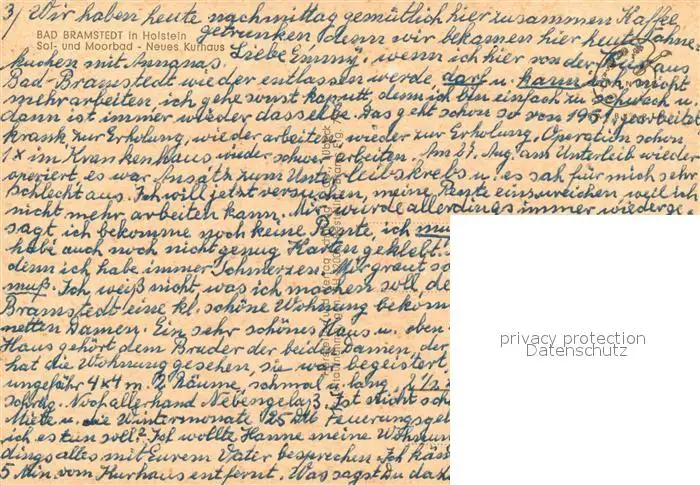 3) Wir haben heute nachmittag gemütlich hier zusammen Kaffee
getrunken denn wir bekamen hier heute Sahne-
BAD BRAMSTEDT in Holstein
Sol- und Moorbad - Neues Kurhaus
kuchen mit Ananas. Liebe Emmy, wenn ich hier von der Kur aus
Bad-Bramstedt wieder entlassen werde, darf u. kann ich nicht
mehr arbeiten, ich gehe sonst kaputt, denn ich bin einfach zu schwach u.
dann ist immer wieder dasselbe. Das geht schon so von 1951, gearbeitet
krank, zur Erholung, wieder arbeiten, wieder zur Erholung, Operation schon
1x im Krankenhaus wieder schwer arbeiten. Am 27. Aug. am Unterleib wieder
operiert, es war Ansatz zum Unterleibskrebs u. es sah für mich sehr
schlecht aus. Ich will jetzt versuchen, meine Rente einzureichen weil ich
nicht mehr arbeiten kann. Mir würde allerdings immer wieder ge-
sagt, ich bekomme noch keine Rente, ich
habe auch noch nicht genug Karten geklebt.
denn ich habe immer Schmerzen. Mir graut
muß. Ich weiß nicht, was ich machen soll,
Bramstedt eine kl. schöne Wohnung
netten Damen. Ein sehr schönes Haus u. eben
Haus gehört dem Bruder der beiden Damen, der
hat die Wohnung gesehen, sie war begeistert,
ungefähr 4x4 m. 2 Räume, schmal u. lang,
schräg. Noch allerhand Nebengelaß. Ist nicht
Miete u. die Wintermonate 25 DM Feuerungsgel
ich es tun soll? Ich wollte Hanne meine
dings alles mit Eurem Vater besprechen. Ich
5 Min. vom Kurhaus entfernt. Was sagst Du
privacy protection
Datenschutz